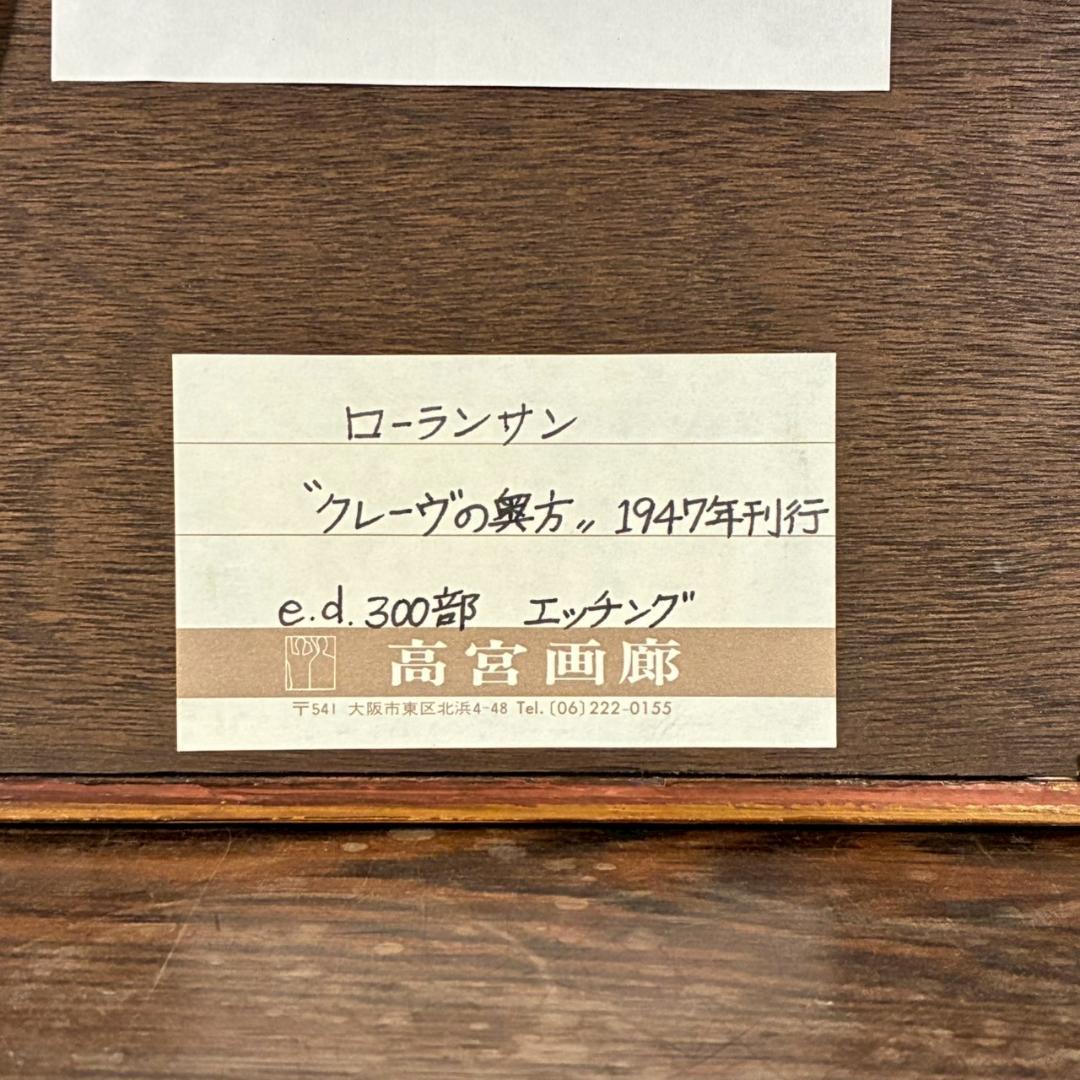 ローランサン
〝クレーヴの奥方〟 1947年刊行
e.d. 300部 エッチング
高宮画廊
〒541 大阪市東区北浜4-48 Tel. (06) 222-0155